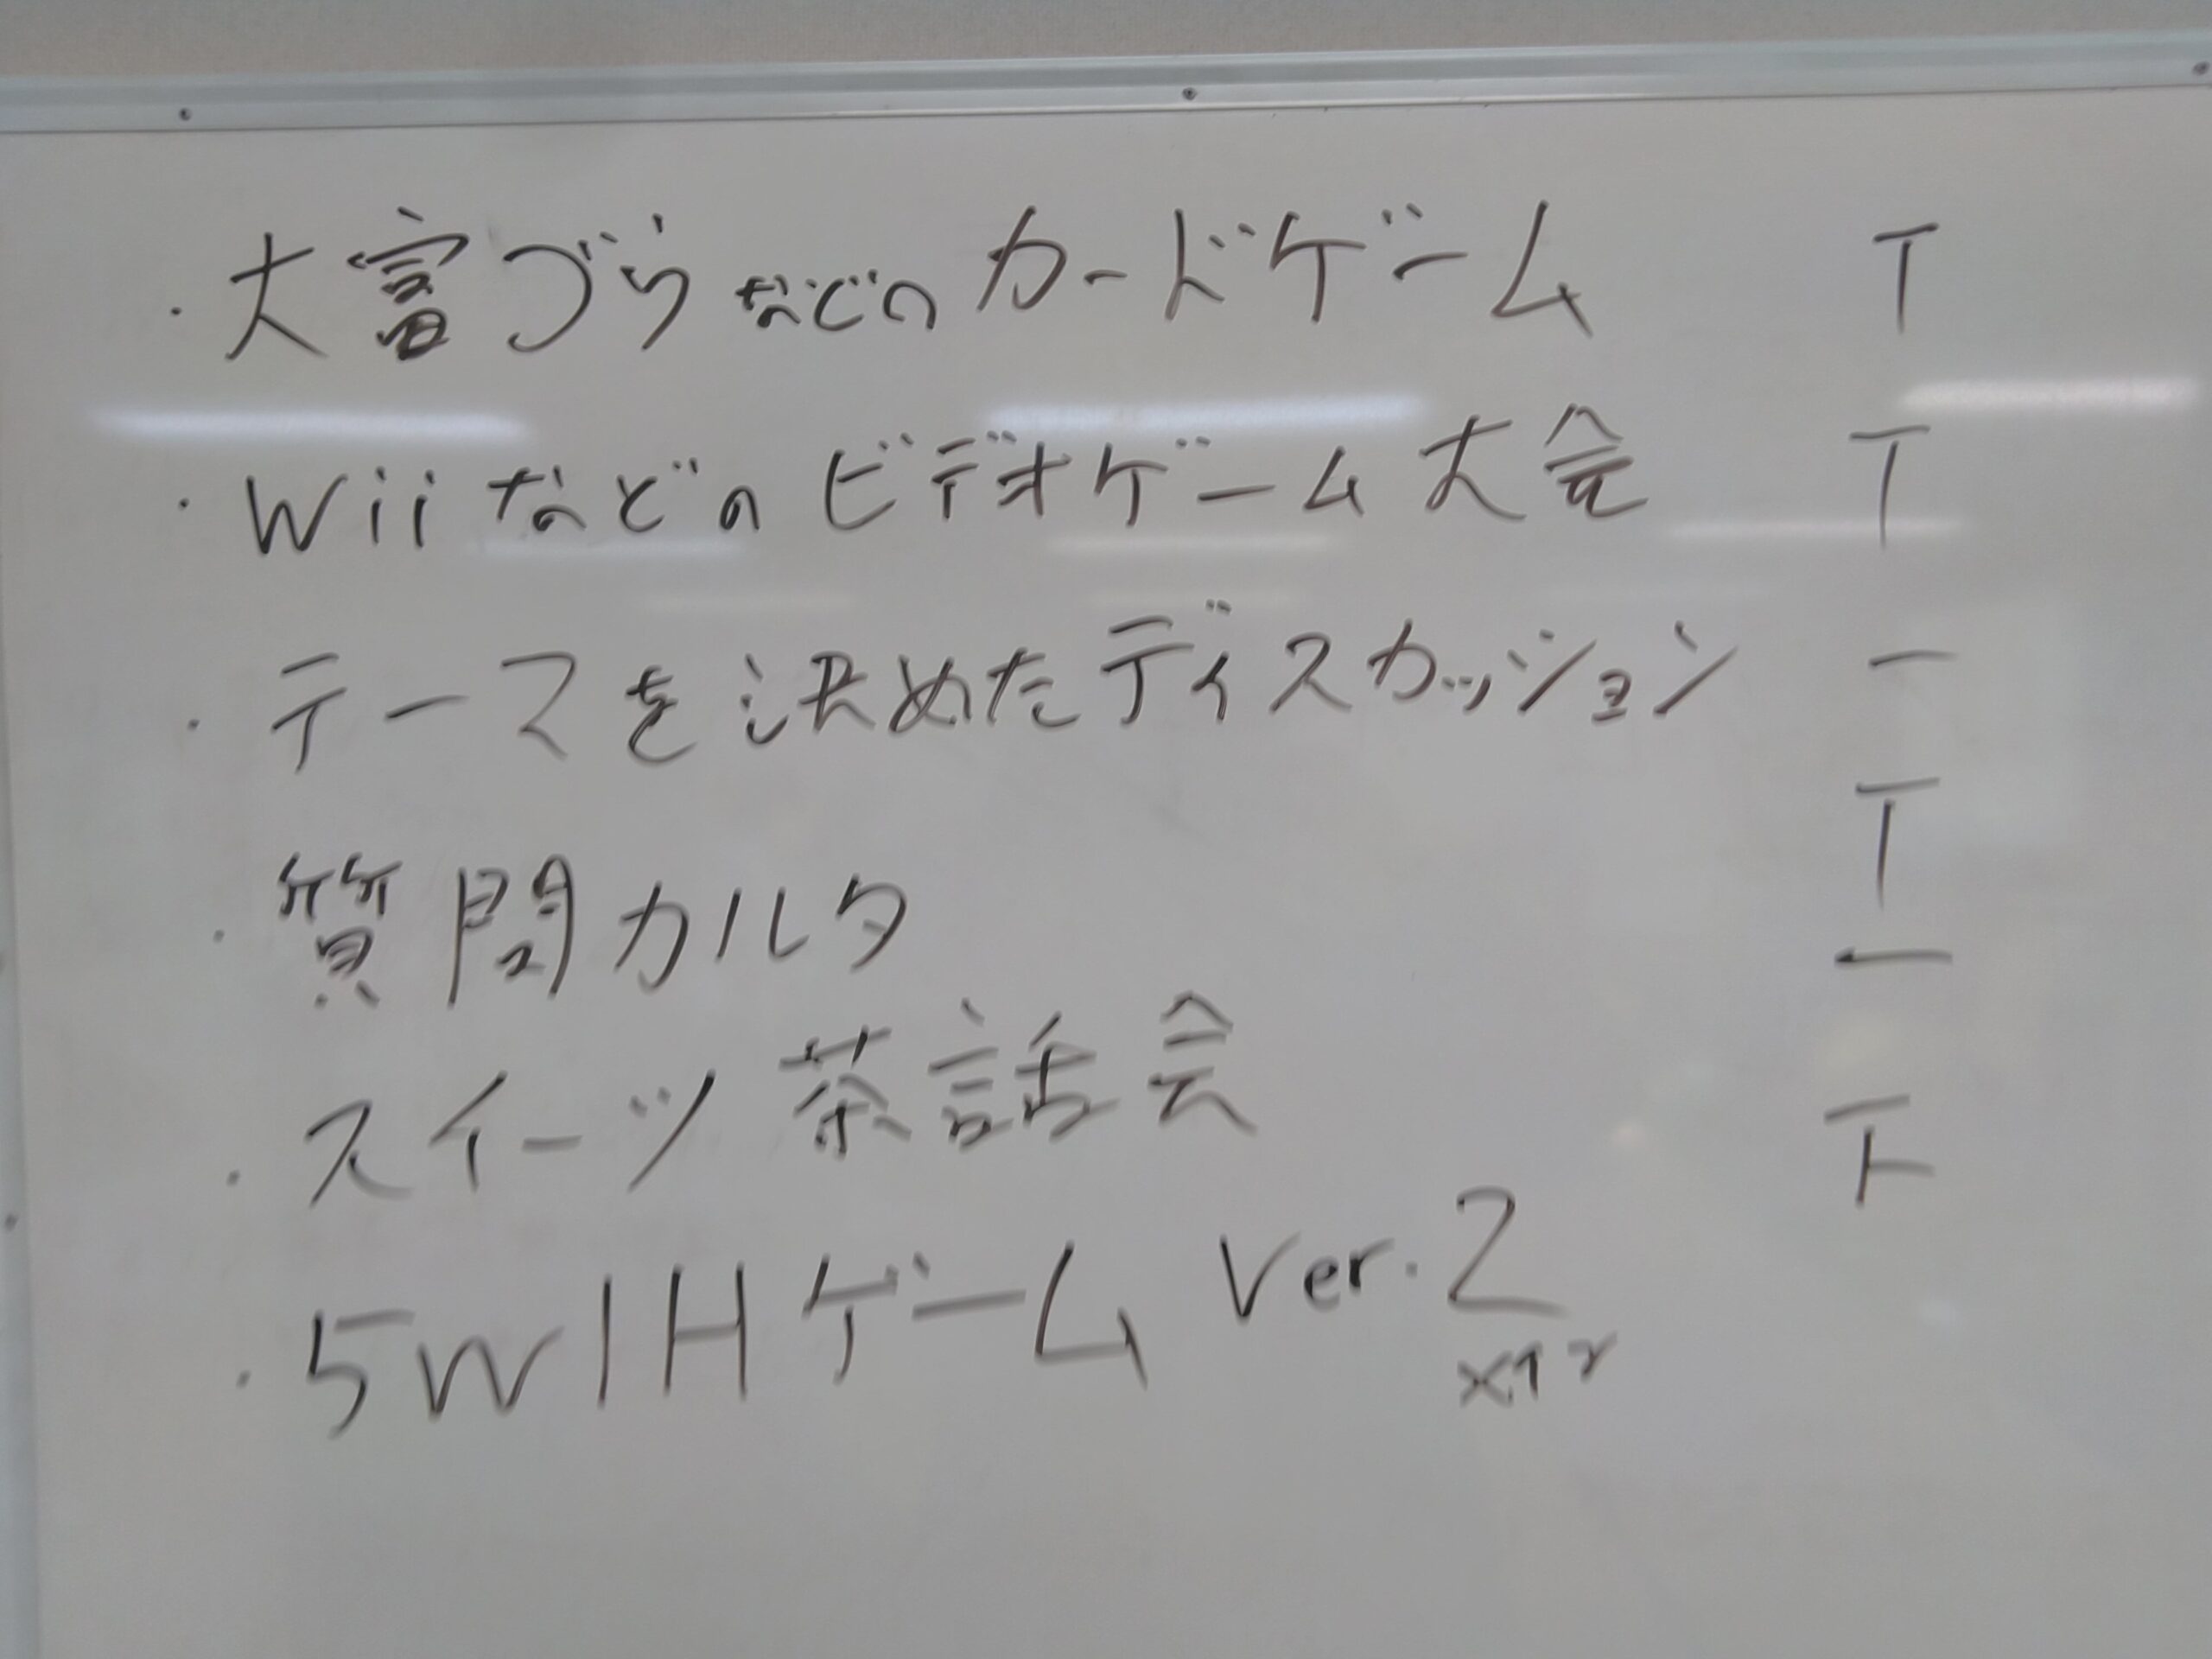 ・大富づらなどのカードゲーム T
・Wiiなどのビデオゲーム大会 T
・テーマを決めたディスカッション 一
・質問カルタ T
・スイーツ茶話会 一
・5W1Hゲーム Ver.2 下